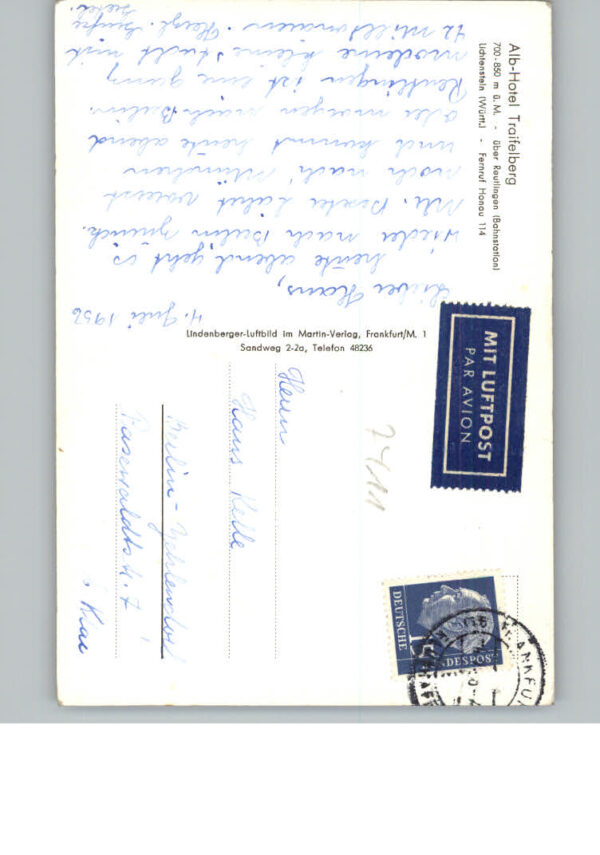 Alb-Hotel Traifelberg
700-850 m ü. M. - über Reutlingen (Bahnstation)
Lichtenstein (Württ.) - Fernruf Honau 114
4. Juli 1956
Lieber Hans,
heute abend geht es
wieder nach Berlin zurück.
Mr. fährt vorerst
noch nach München
und kommt heute abend
oder morgen nach Berlin.
Reutlingen ist eine ganz
moderne kleine Stadt mit
42 Millionären. Herzl. Grüße
Lindenberger-Luftbild im Martin-Verlag, Frankfurt/M. 1
Sandweg 2-2a, Telefon 48236
MIT LUFTPOST
PAR AVION
Herrn
Hans Kelle
Berlin-Zehlendorf
7411
DEUTSCHE
BUNDESPOST
FRANKFU